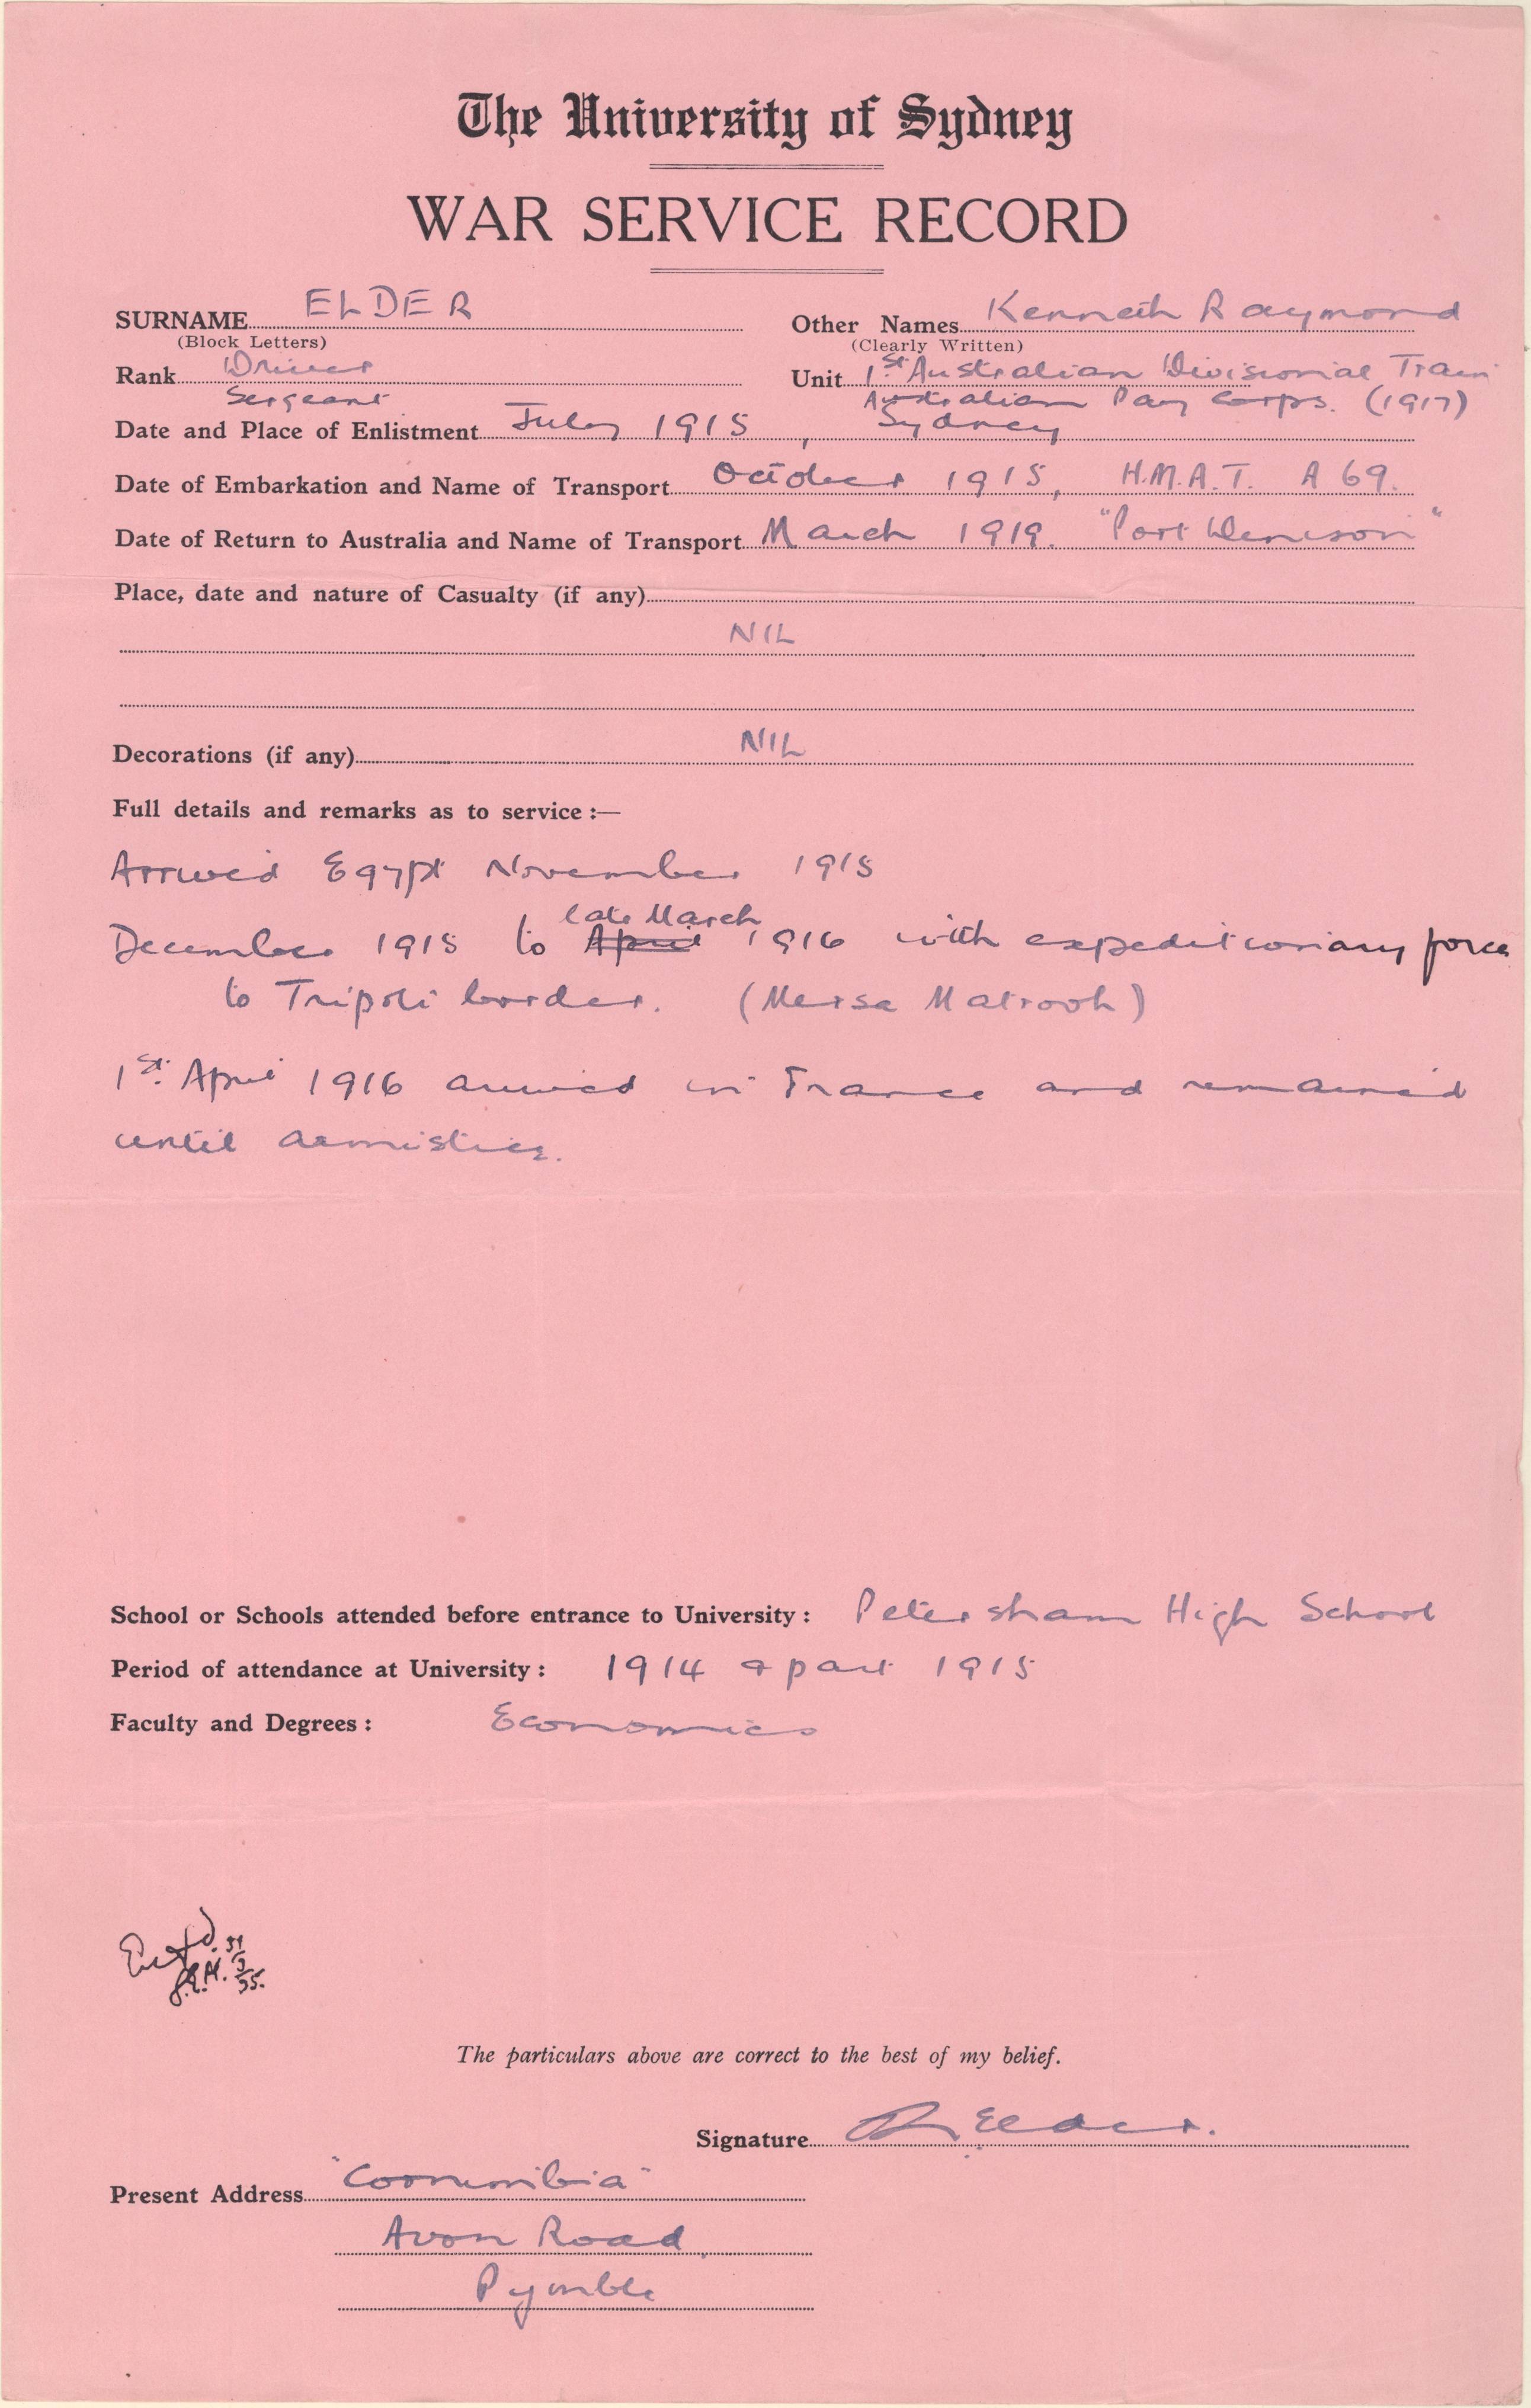 The University of Sydney
WAR SERVICE RECORD
SURNAME ELDER Other Names Kenneth Raymond
(Block Letters) (Clearly Written)
Rank Driver Unit 1st Australian Divisional Train
Sergeant Australian Pay Corps. (1917)
Date and Place of Enlistment July 1915, Sydney
Date of Embarkation and Name of Transport October 1915, H.M.A.T. A 69.
Date of Return to Australia and Name of Transport March 1919. "Port Denison"
Place, date and nature of Casualty (if any)
NIL
Decorations (if any) NIL
Full details and remarks as to service :—
Arrived Egypt November 1915
late March
December 1915 to April 1916 with expeditionary force
to Tripoli border. (Mersa Matrooh)
1st April 1916 arrived in France and remained
until armistice.
School or Schools attended before entrance to University : Petersham High School
Period of attendance at University : 1914 & part 1915
Faculty and Degrees : Economics
Entd. 31
3
35.
The particulars above are correct to the best of my belief.
Signature Elder.
Present Address
Avon Road
Pymble